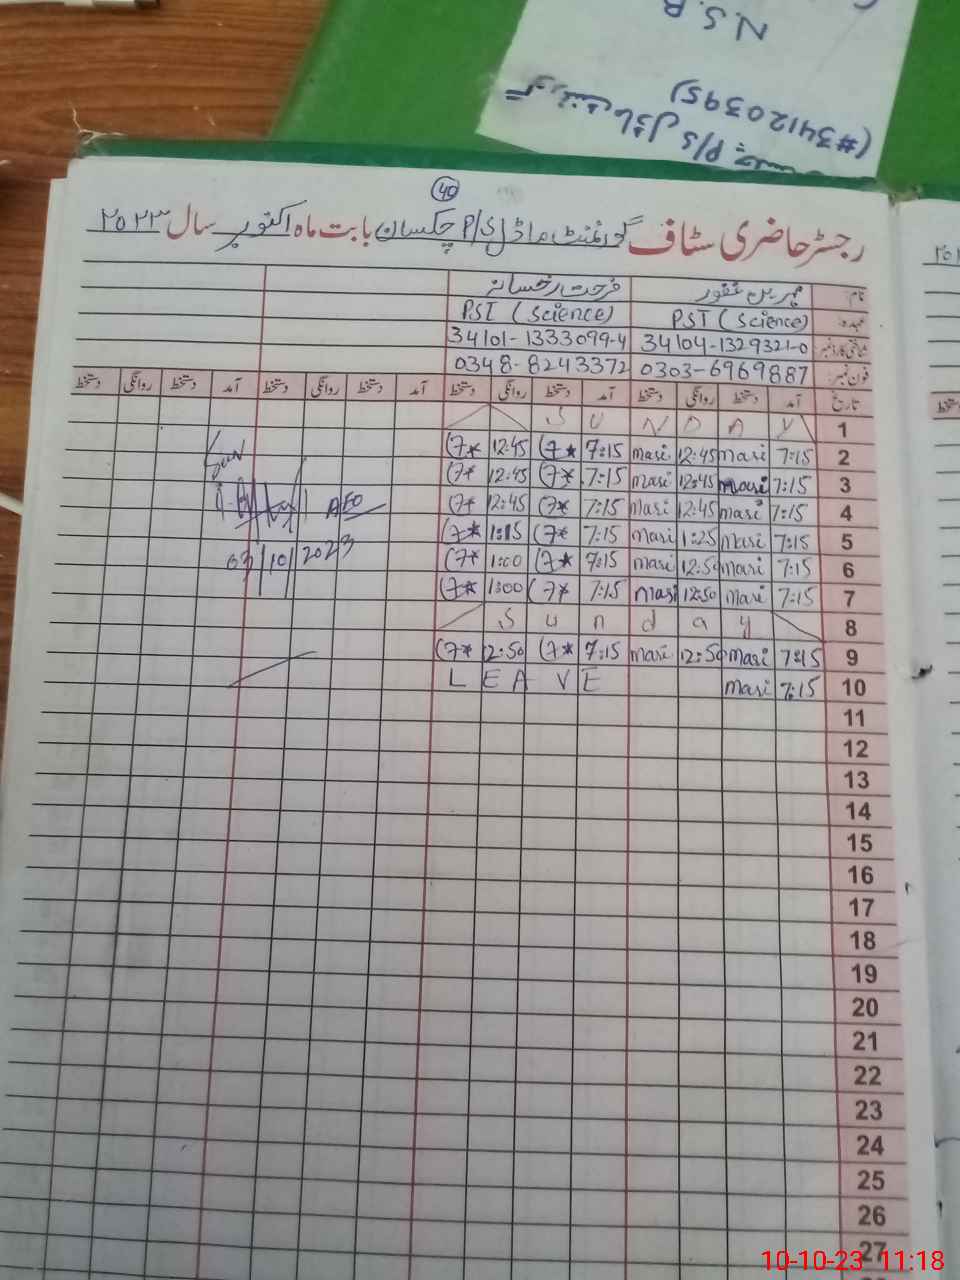 N.S.B
گورنمنٹ ماڈل P/S چکسان
(#34120395)
40
رجسٹر حاضری سٹاف گورنمنٹ ماڈل P/S چکسان بابت ماہ اکتوبر سال ۲۰۲۳
نام: مہرین غفور فرحت رخسانہ
عہدہ: PST (Science) PST (Science)
شناختی کارڈ نمبر 34104-1329321-0 34101-1333099-4
فون نمبر: 0303-6969887 0348-8243372
تاریخ آمد دستخط روانگی دستخط آمد دستخط روانگی دستخط آمد دستخط روانگی دستخط آمد دستخط روانگی دستخط
1 S U N D A Y
2 7:15 masi 12:45 masi 7:15 12:45
3 7:15 masi 12:45 masi 7:15 12:45
4 7:15 masi 12:45 masi 7:15 12:45
5 7:15 masi 1:25 masi 7:15 1:15
6 7:15 masi 12:50 masi 7:15 1:00
7 7:15 masi 12:50 masi 7:15 1:00
8 S u n d a y
9 7:45 masi 12:50 masi 7:15 12:50
10 7:15 masi L E A V E
AEO
03/10/2023
11
12
13
14
15
16
17
18
19
20
21
22
23
24
25
26
27
10-10-23 11:18